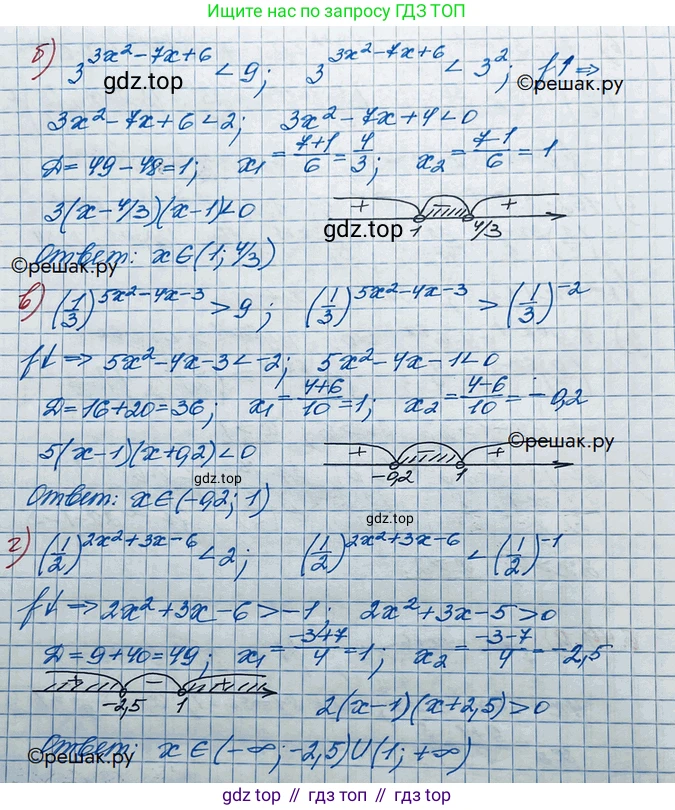 Ищите по запросу ГДЗ ТОП
б) 3^{3x²-7x+6} < 9; 3^{3x²-7x+6} < 3²; f↑ ⇒
gdz.top
©решак.ру
3x²-7x+6 < 2; 3x²-7x+4 < 0
D = 49-48 = 1; x₁ = \frac{7+1}{6} = \frac{4}{3}; x₂ = \frac{7-1}{6} = 1
3(x-4/3)(x-1) < 0
+ - +
1 4/3
gdz.top
Ответ: x ∈ (1; 4/3)
©решак.ру
в) (\frac{1}{3})^{5x²-4x-3} > 9; (\frac{1}{3})^{5x²-4x-3} > (\frac{1}{3})^{-2}
f↓ ⇒ 5x²-4x-3 < -2; 5x²-4x-1 < 0
D = 16+20 = 36; x₁ = \frac{4+6}{10} = 1; x₂ = \frac{4-6}{10} = -0,2
5(x-1)(x+0,2) < 0
+ - +
-0,2 1
©решак.ру
gdz.top
Ответ: x ∈ (-0,2; 1)
gdz.top
г) (\frac{1}{2})^{2x²+3x-6} < 2; (\frac{1}{2})^{2x²+3x-6} < (\frac{1}{2})^{-1}
f↓ ⇒ 2x²+3x-6 > -1; 2x²+3x-5 > 0
D = 9+40 = 49; x₁ = \frac{-3+7}{4} = 1; x₂ = \frac{-3-7}{4} = -2,5
+ - +
-2,5 1
2(x-1)(x+2,5) > 0
Ответ: x ∈ (-∞; -2,5) U (1; +∞)
©решак.ру
gdz.top // гдз.топ // гдз.top